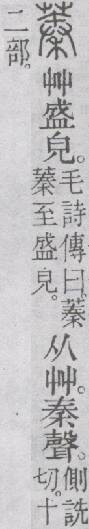 蓁艸盛皃。毛詩傳曰。蓁蓁至盛皃。从艸。秦聲。側詵切。十
二部。